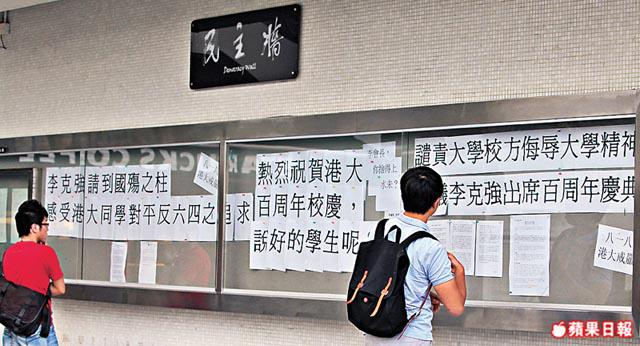 民主牆
Democracy Wall
李克強請到國殤之柱
感受港大同學對平反六四之追求
八一八
熱烈祝賀港大
百周年校慶，
說好的學生呢
會長，
你捨得上
水未？
譴責大學校方侮辱大學精神
議李克強出席百周年慶典
八一八
港大戒嚴
蘋果日報